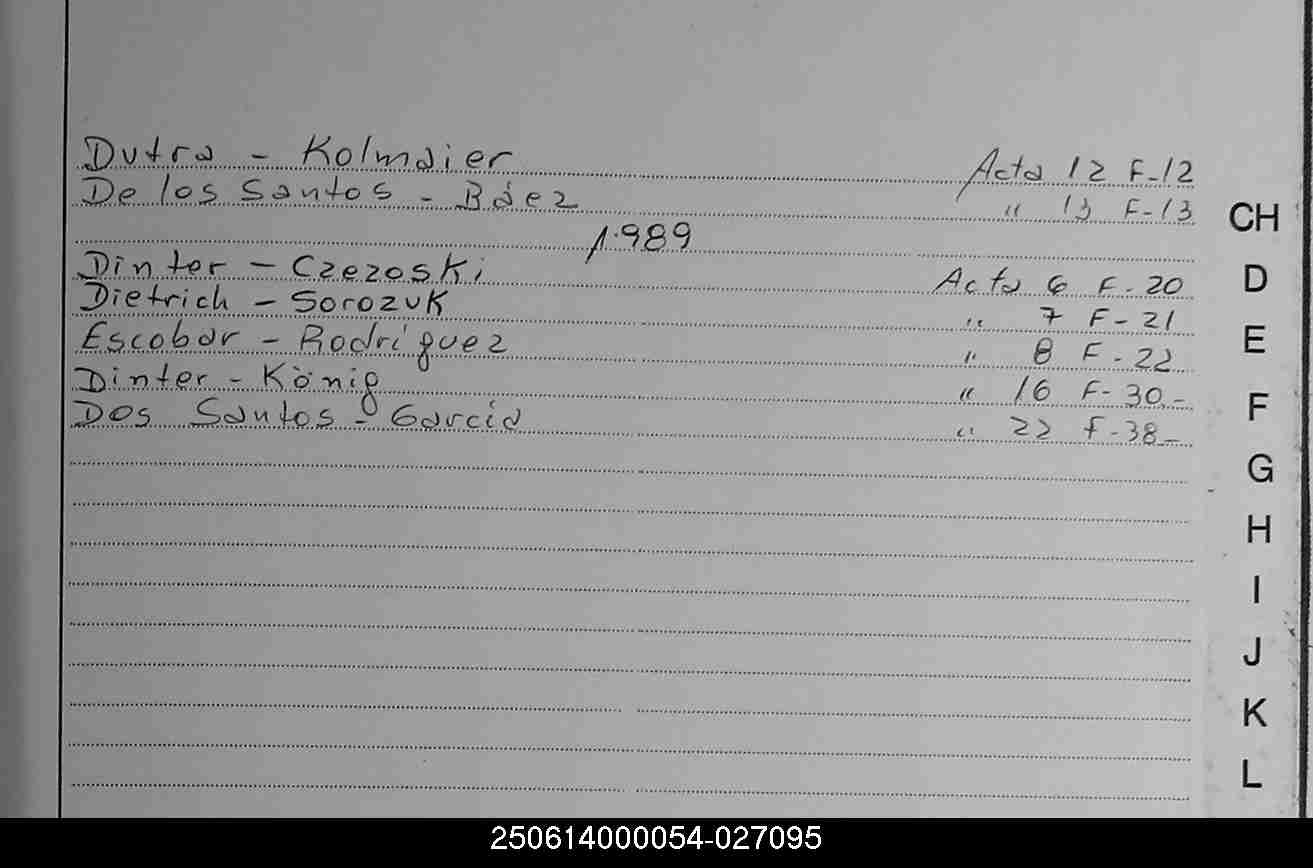 Dutra - Kolmaier Acta 12 F-12
De los Santos - Báez " 13 F-13
1.989
Dinter - Czezoski Acta 6 F-20
Dietrich - Sorozuk " 7 F-21
Escobar - Rodríguez " 8 F-22
Dinter - König " 16 F-30-
Dos Santos - García " 22 F-38-
CH
D
E
F
G
H
I
J
K
L
250614000054-027095